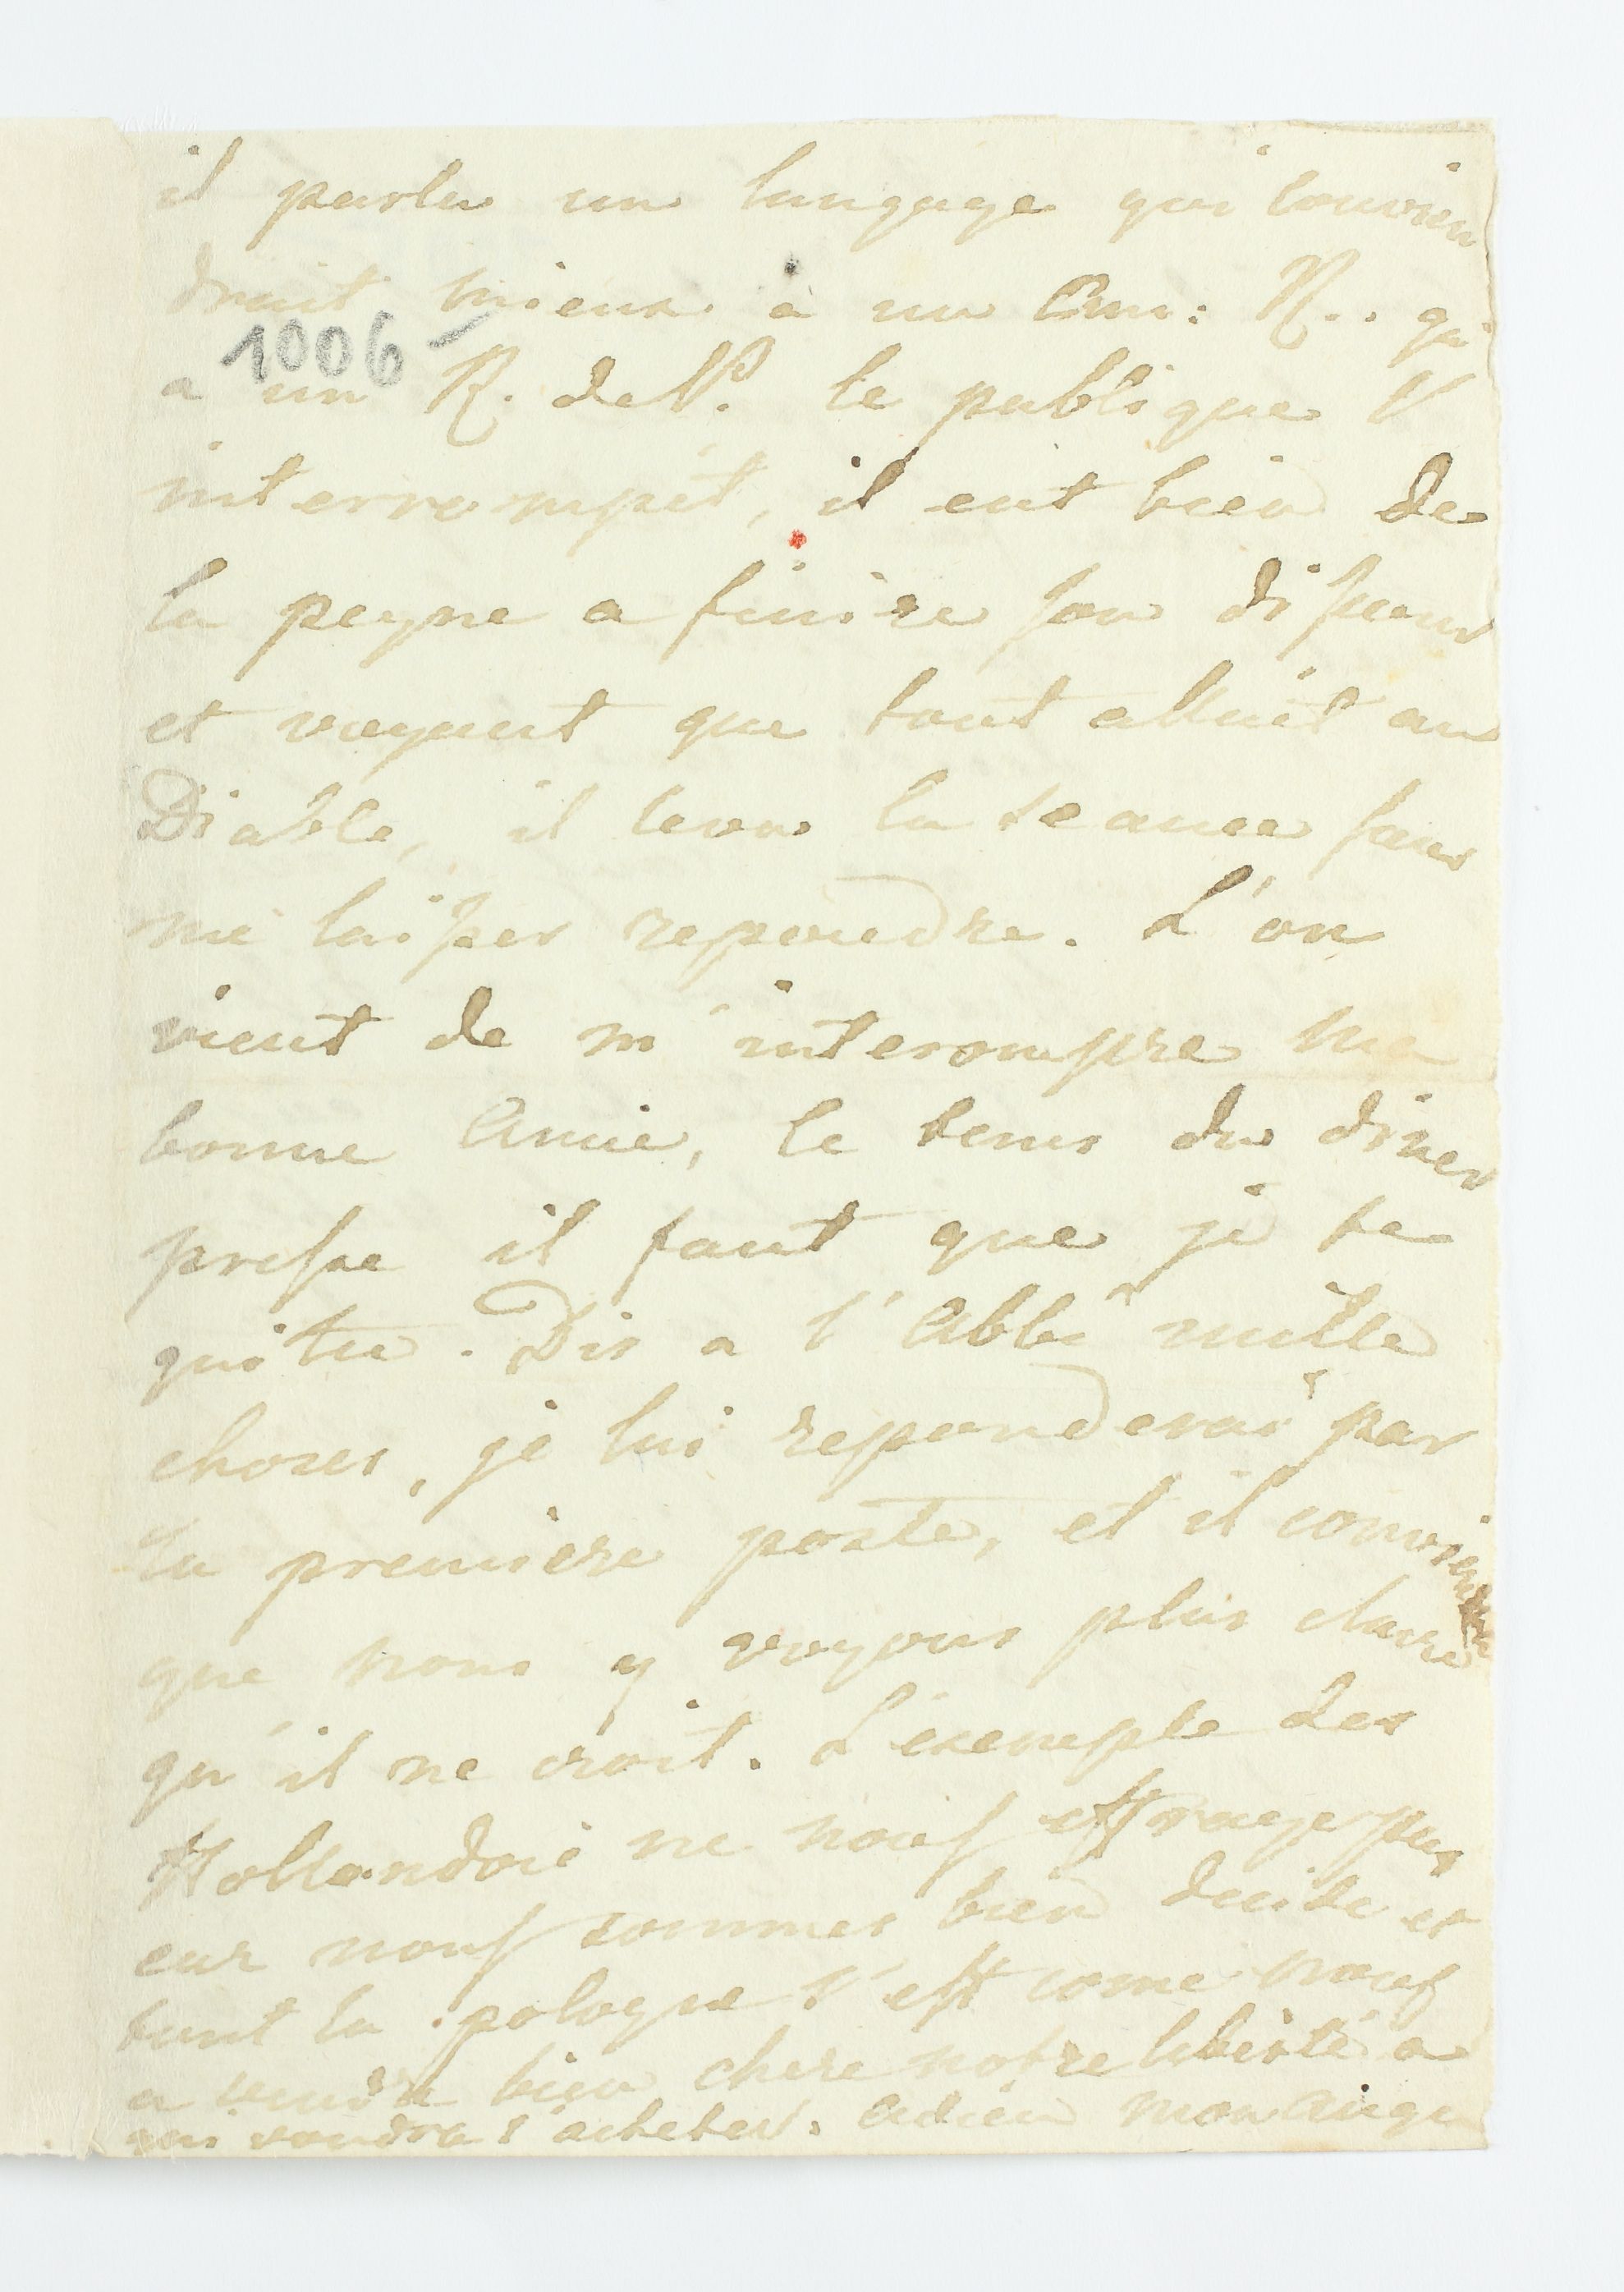 il parla un langage qui convien
drait mieux à un Em: R.. qu
1006 -
a un R. de P. le publique l'
interrompit, il eut bien de
la peyne a finire son discour
et voyant que tout alloit au
Diable, il leva la seance sans
me laisser repondre. L'on
vient de m'interompre ma
bonne Amie, le tems du diner
presse il faut que je te
quitte. Dis a l'Abbé mille
choses, je lui reponderai par
la premiere poste, et il conviendra
que nous y voyons plus claire
qu'il ne croit. L'exemple des
Hollandois ne nous effraye pas
car nous sommes bien decide et
tant la pologne l'est come nous
a vendre bien chere notre liberté a
qui voudra l'acheter. Adieu mon Ange